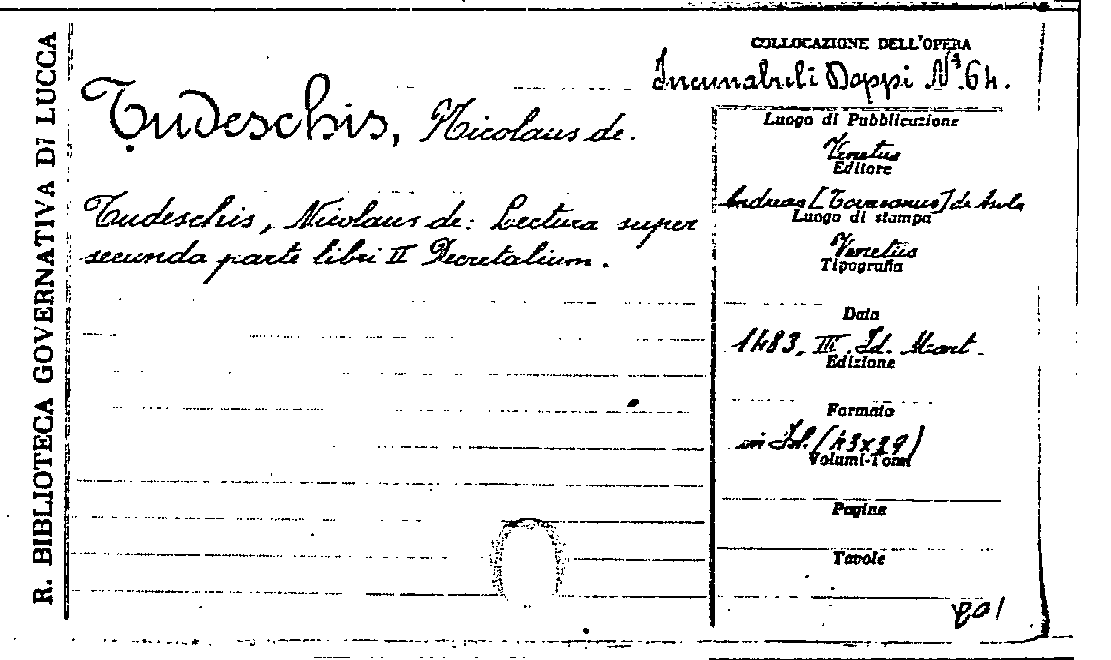 R. BIBLIOTECA GOVERNATIVA DI LUCCA
COLLOCAZIONE DELL'OPERA
Incunabuli Doppi N° 64.
Tudeschis, Nicolaus de.
Tudeschis, Nicolaus de: Lectura super
secunda parte libri II Decretalium.
Luogo di Pubblicazione
Venetiis
Editore
Andreas [Torresanus] de Asula
Luogo di stampa
Venetiis
Tipografia
Data
1483, III. Id. Mart.
Edizione
Formato
in fol. (43x29)
Volumi-Tomi
Pagine
Tavole